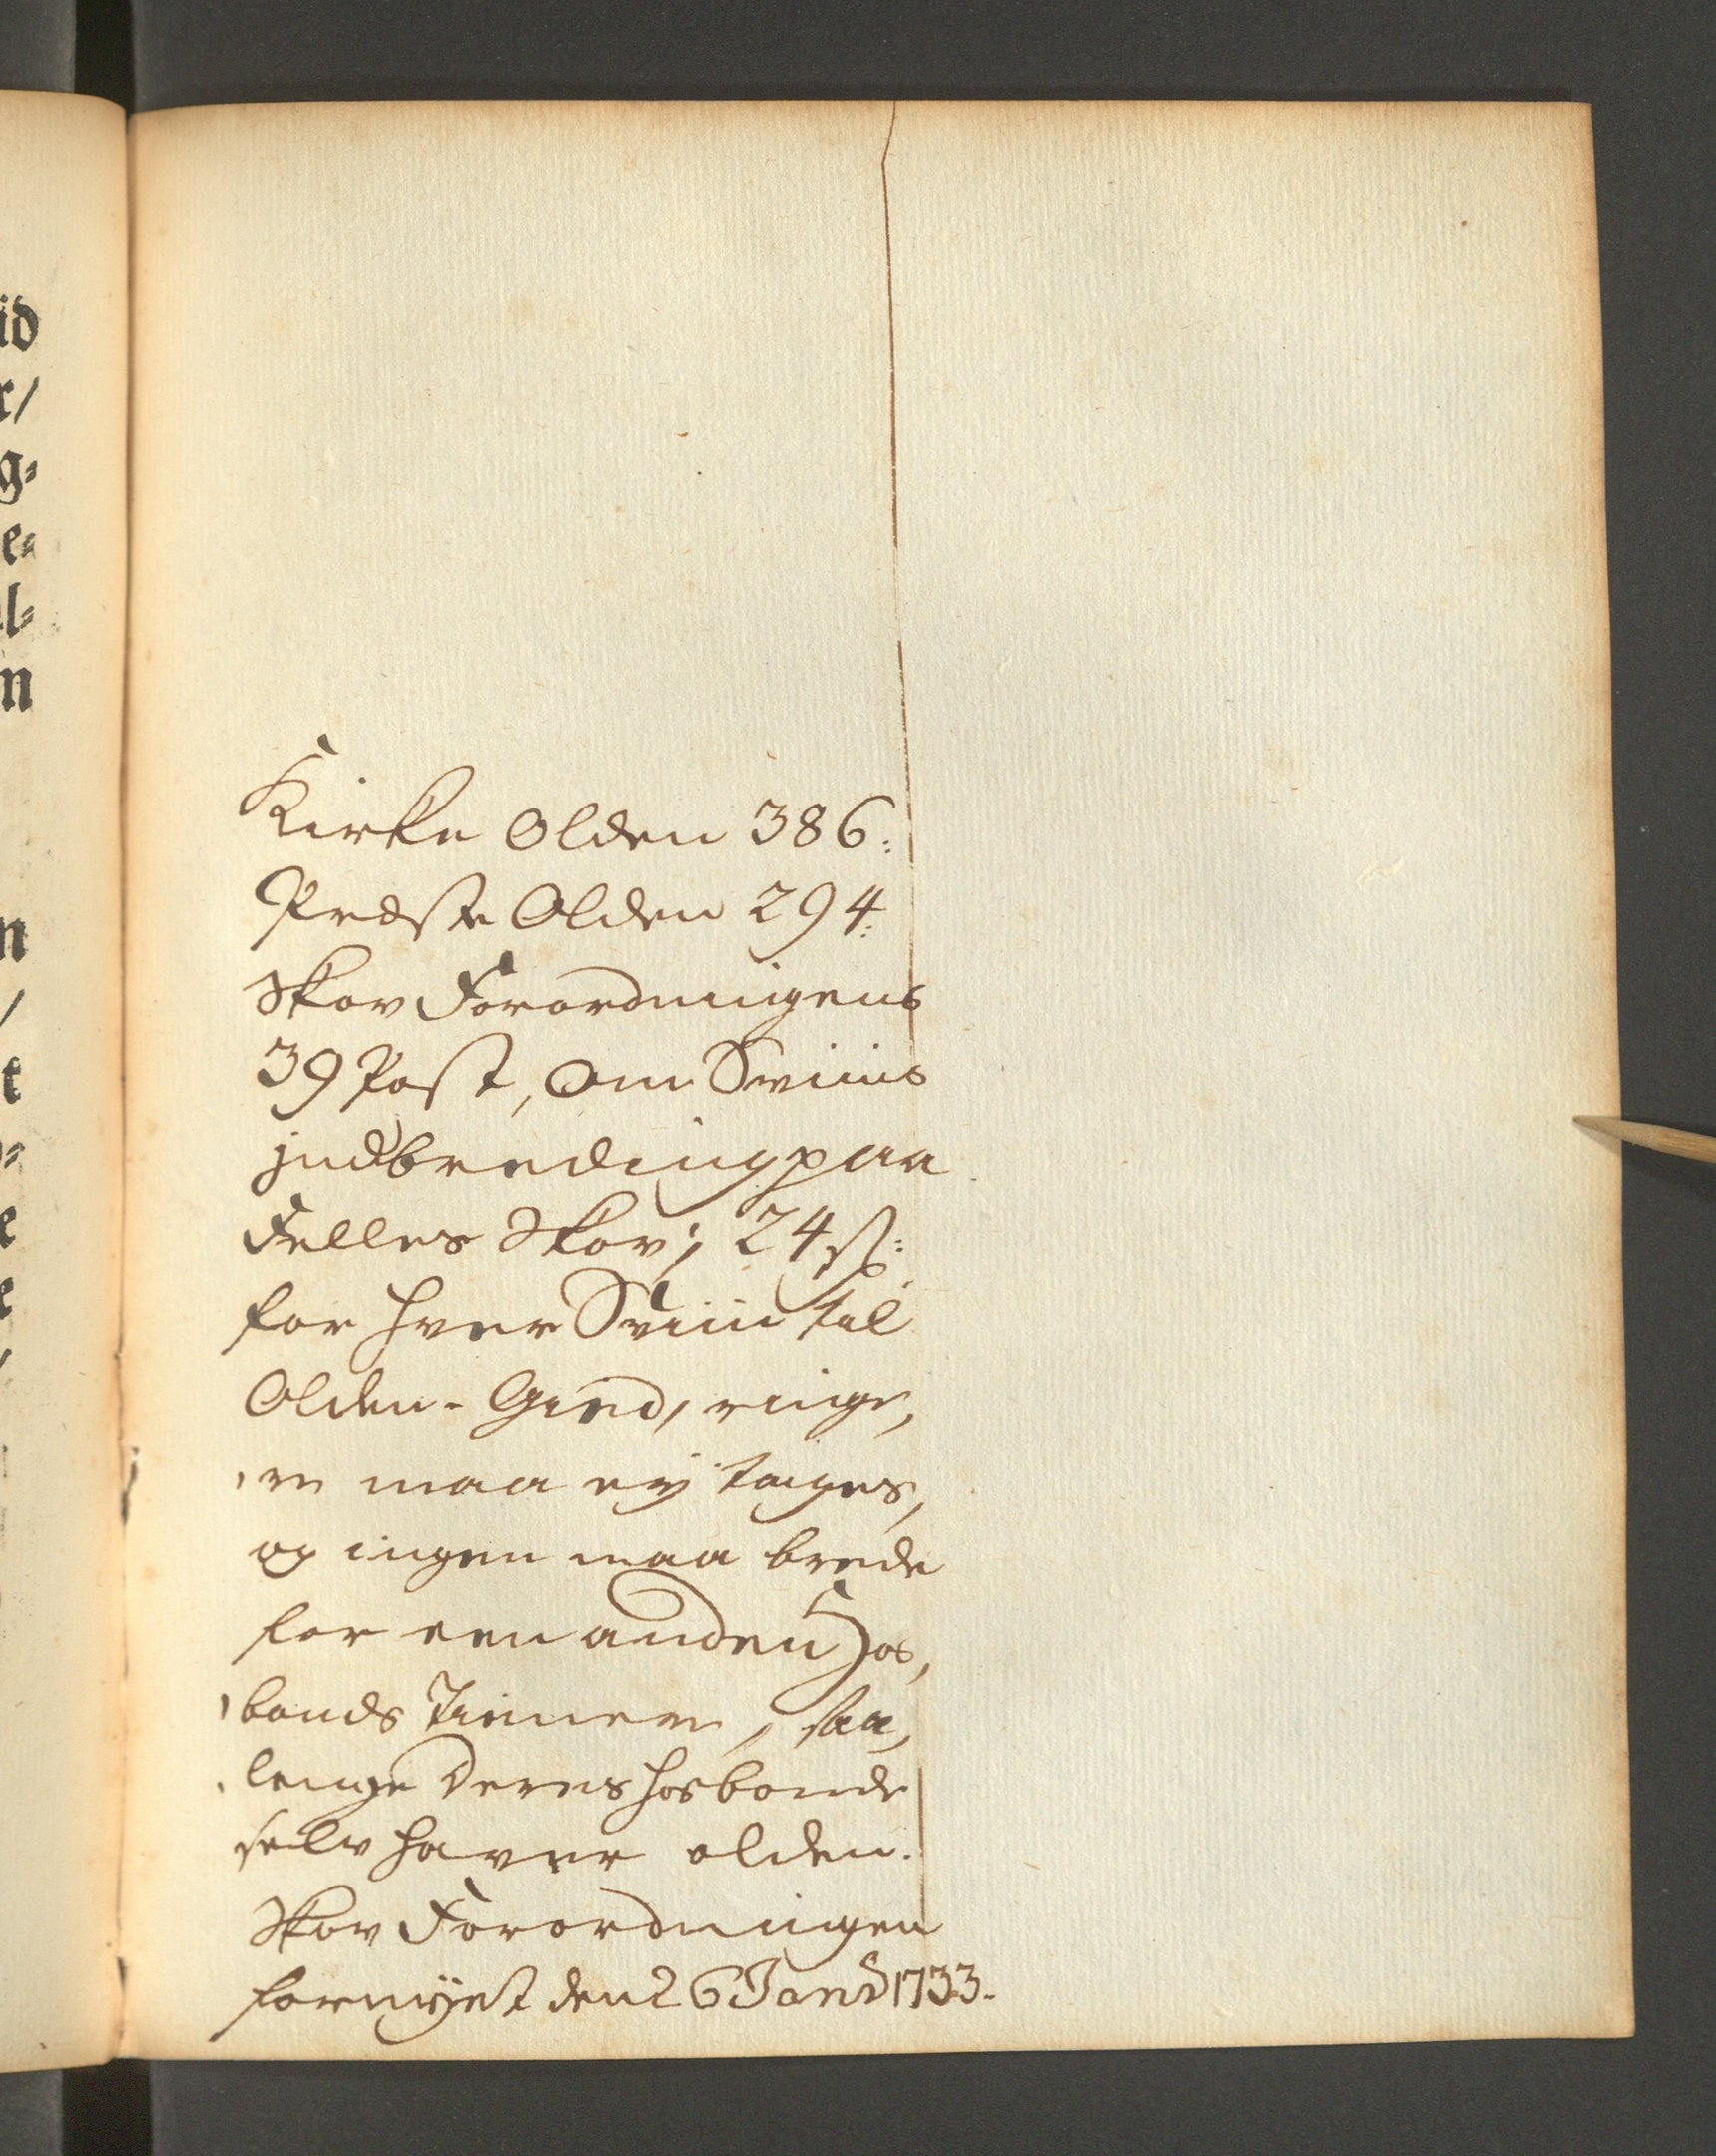 id
r/
g=
e=
l=
n
n
/
t
e
e
Kirke Olden 386:
Præste Olden 294:
Skov Forordningens
39 Post, om Sviins
jndbreding paa
Felles Skov; 24 ß:
for hver Sviin til
Olden-Gied, ringe,
,re maa ey tages,
og ingen maa brede
for een anden Hos,
,bonds Tienere, saa,
,lenge deres Hosbonde
selv haver olden.
Skov Forordningen
fornyet den 26 Janv 1733.